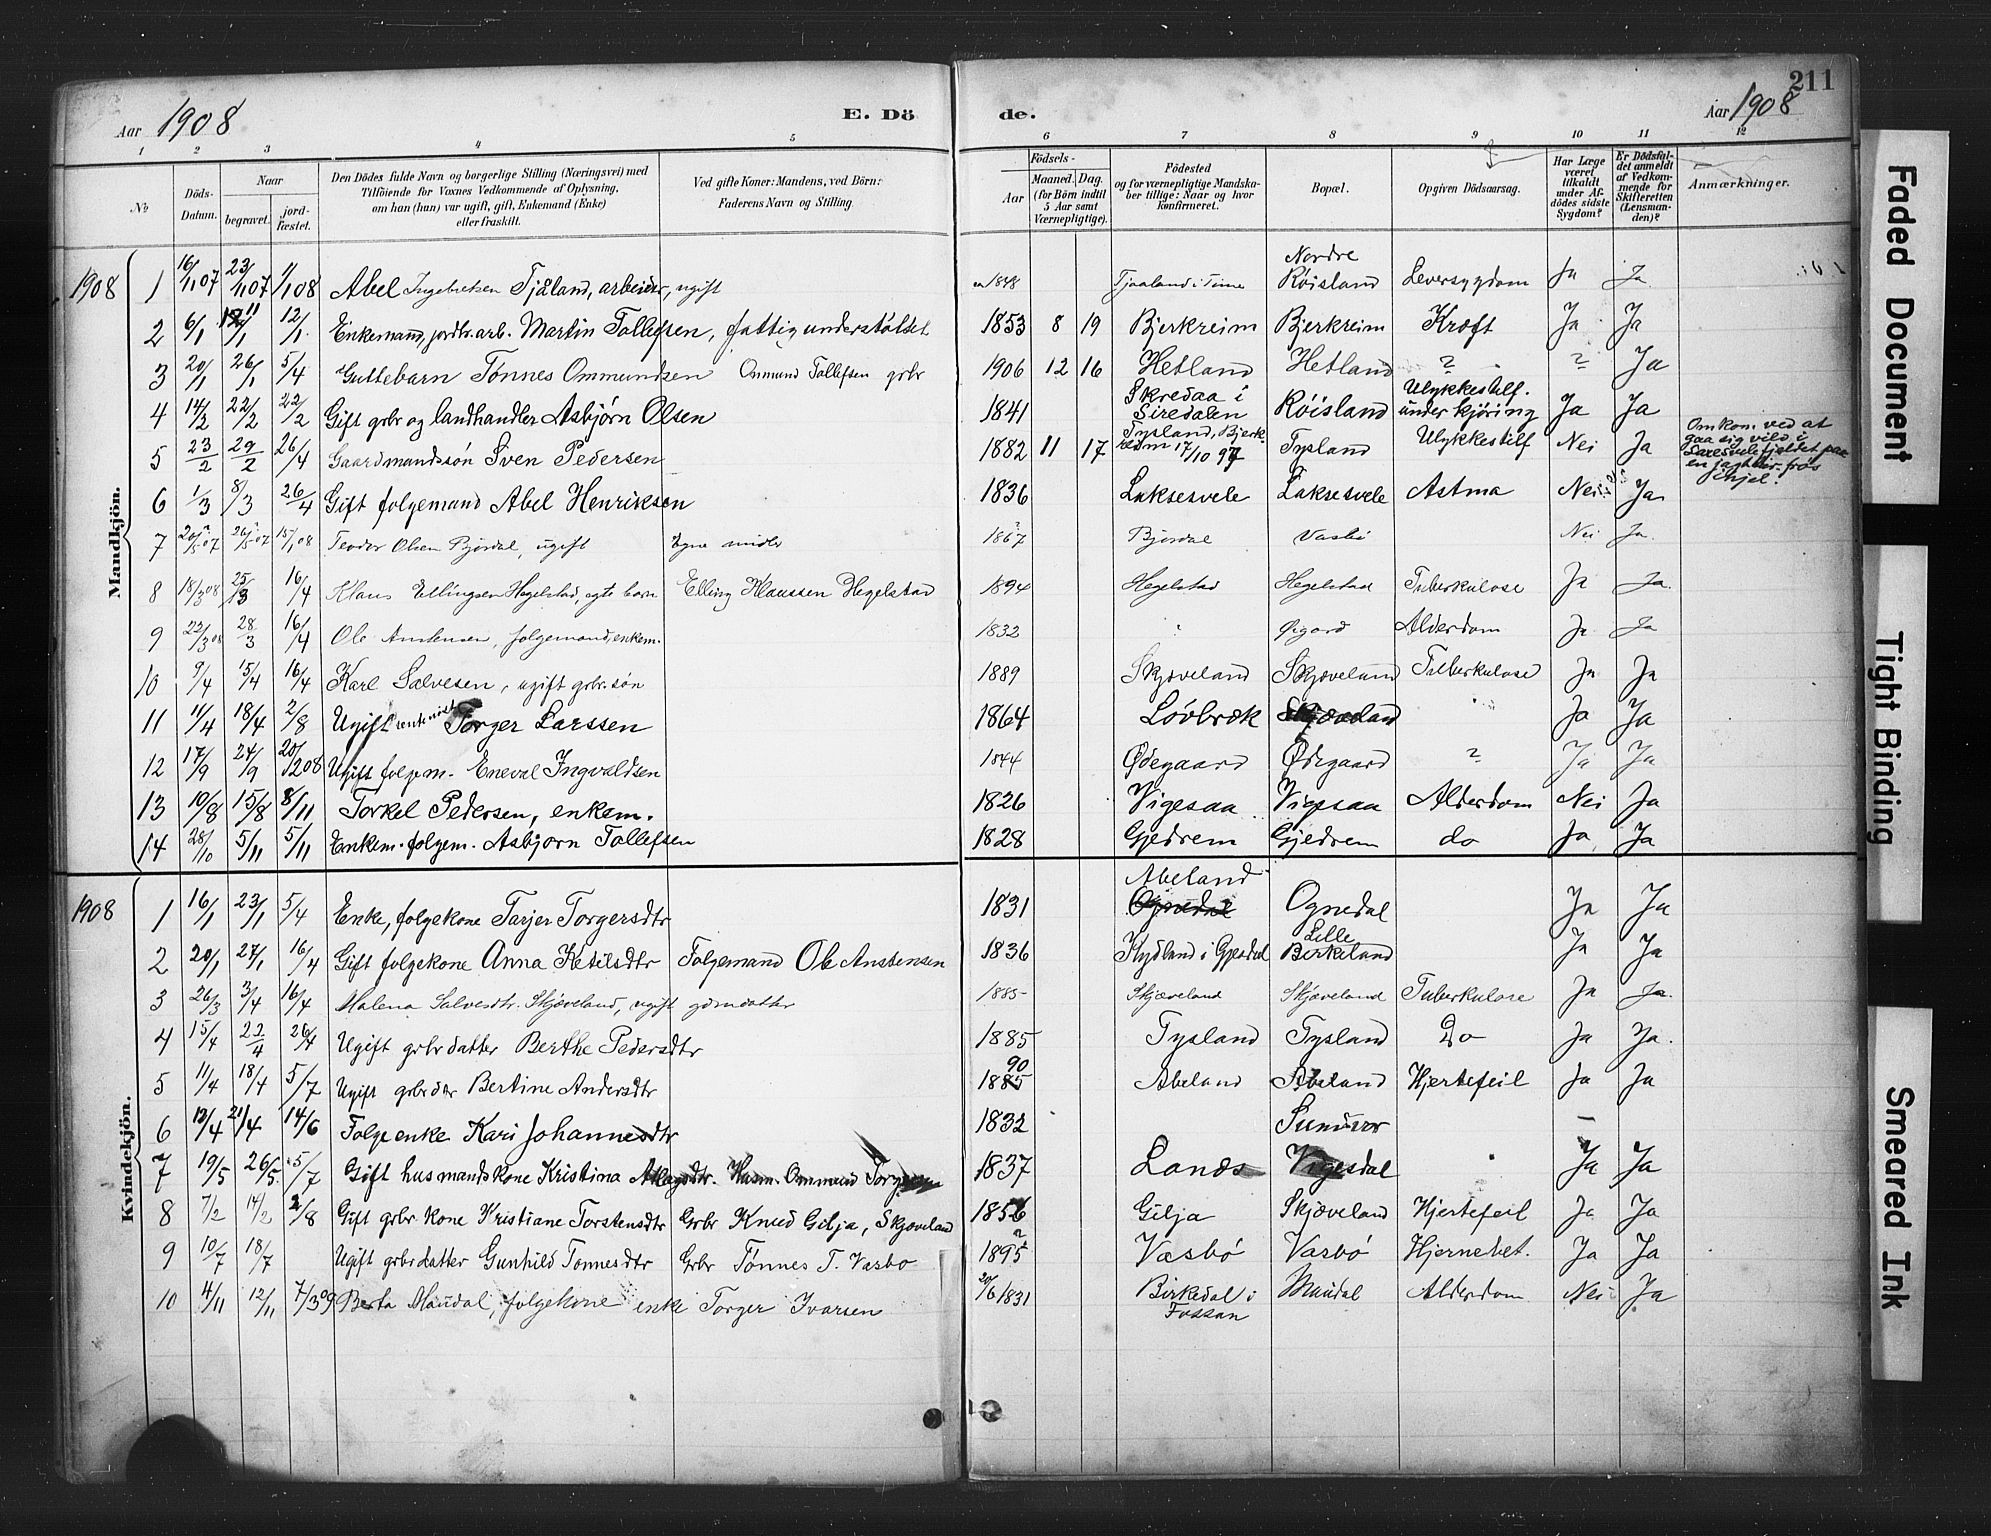 211
Aar 1908 E. Dö de. Aar 1908
1 2 3 4 5 6 7 8 9 10 11 12
№ Döds-Datum. Naar begravet. jord-fæstet. Den Dödes fulde Navn og borgerlige Stilling (Næringsvei) med Tilföiende for Voxnes Vedkommende af Oplysning, om han (hun) var ugift, gift, Enkemand (Enke) eller fraskilt. Ved gifte Koner: Mandens, ved Börn: Faderens Navn og Stilling. Födsels- Aar Maaned. Dag. (for Börn indtil 5 Aar samt Værnepligtige). Födested og for værnepligtige Mandskaber tillige: Naar og hvor konfirmeret. Bopæl. Opgiven Dödsaarsag. Har Læge været tilkaldt under Afdödes sidste Sygdom? Er Dödsfaldet anmeldt af Vedkommende for Skifteretten (Lensmanden)? Anmærkninger.
Mandkjön.
1908 1 16/11 07 23/11 07 1/1 08 Abel Ingebretsen Tjåland, arbeider, ugift ca 1848 Tjaaland i Time Nordre Röisland Leversygdom Ja Ja
2 6/1 11/1 12/1 Enkemand, jordbr. arb. Martin Tollefsen, fattigunderstöttet 1853 8 19 Bjerkreim Bjerkreim Kræft Ja Ja
3 20/1 26/1 5/4 Guttebarn Tönnes Ommundsen Ommund Tollefsen grbr 1906 12 16 Hetland Hetland ? ? Ja
4 14/2 22/2 22/2 Gift grbr og Landhandler Asbjørn Olsen 1841 Skredaa i Siredalen Röisland Ulykkestilf. under kjöring Ja Ja
5 23/2 29/2 26/4 Gaardmandssön Sven Pedersen 1882 11 17 Tysland, Bjerkreim 17/10 97 Tysland Ulykkestilf Nei Ja Omkom ved at gaa sig vild i Laxesvelefjeldet paa en jagttur. frös ihjel.
6 1/3 8/3 26/4 Gift folgemand Abel Henriksen 1836 Laksesvele Laksesvele Astma Nei Ja
7 20/5 07 26/5 07 15/1 08 Teodor Olsen Björdal, ugift Egne midler 1867 Bjørdal Vasbö Nei Ja.
8 18/3 08 25/3 16/4 Klaus Ellingsen Hegelstad, egte barn Elling Klaussen Hegelstad 1894 Hegelstad Hegelstad Tuberkulose Ja Ja.
9 22/3 08 28/3 16/4 Ole Anstensen, folgemand, enkem. 1832 " Øigard Alderdom Ja Ja
10 9/4 15/4 16/4 Karl Salvesen, ugift grbr. sön 1889 Skjæveland Skjæveland Tuberkulose Ja Ja
11 11/4 18/4 2/8 Ugift Torger Larssen 1864 Lövbræk Skjæveland Ja Ja
12 17/9 24/9 20/12 08 Ugift folgem. Eneval Ingvaldsen 1844 Ødegaard Ødegaard ? Ja Ja
13 10/8 15/8 8/11 Torkel Pedersen, enkem. 1826 Vigesaa Vigesaa Alderdom Nei Ja
14 28/10 5/11 5/11 Enkem. folgem. Asbjørn Tollefsen 1828 Gjedrem Gjedrem do Ja Ja
Kvindekjön.
1908 1 16/1 23/1 5/4 Enke, folgekone Tarjer Torgersdtr 1831 Abeland Ognedal Ognedal Ja Ja
2 20/1 27/1 16/4 Gift folgekone Anna Ketilsdtr Folgemand Ole Anstensen 1836 Kydland i Gjesdal Lille Birkeland Ja Ja
3 26/3 3/4 16/4 Malena Salvesdtr. Skjæveland, ugift grdmdatter 1885 Skjæveland Skjæveland Tuberkulose Ja Ja.
4 15/4 22/4 26/4 Ugift grbr datter Berthe Pedersdtr 1885 Tysland Tysland Do Ja Ja.
5 11/4 18/4 5/7 Ugift grbr dtr Bertine Andersdtr 1885 90 Abeland Abeland Hjertefeil Ja Ja
6 12/4 21/4 14/6 Folge enke Kari Johannesdtr 1832 Sundvor —
7 19/5 26/5 5/7 Gift husmandskone Kristina Aslagsdtr. Husm. Ommund 1837 Lands Vigesdal Ja Ja
8 7/2 14/2 2/8 Gift grbr kone Kristiane Torstensdtr Grbr Knud Gilja, Skjæveland 1856 Gilja Skjæveland Hjertefeil Ja Ja
9 10/7 18/7 Ugift grbrdatter Gunhild Tonnesdtr Grbr Tönnes T. Vasbo 1895 Vasbö Vasbö Hjernebet. Ja Ja
10 4/11 12/11 7/3 09 Berta Maudal, folgekone enke Torger Ivarsen 20/6 1831 Birkedal i Fossan Maudal Alderdom Nei Ja
Faded Document
Tight Binding
Smeared Ink